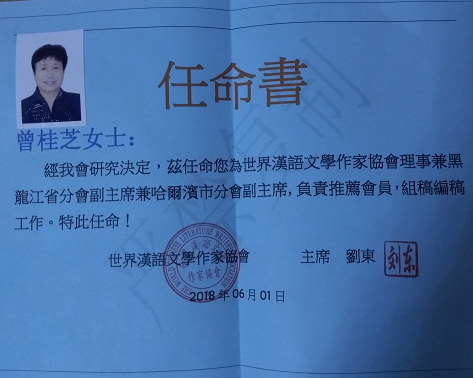 任命書
曾桂芝女士：
經我會研究決定，茲任命您為世界漢語文學作家協會理事兼黑
龍江省分會副主席兼哈爾濱市分會副主席，負責推薦會員，組稿編稿
工作。特此任命！
世界漢語文學作家協會 主席 劉東
作家協會
刘东
2018 年 06 月 01 日